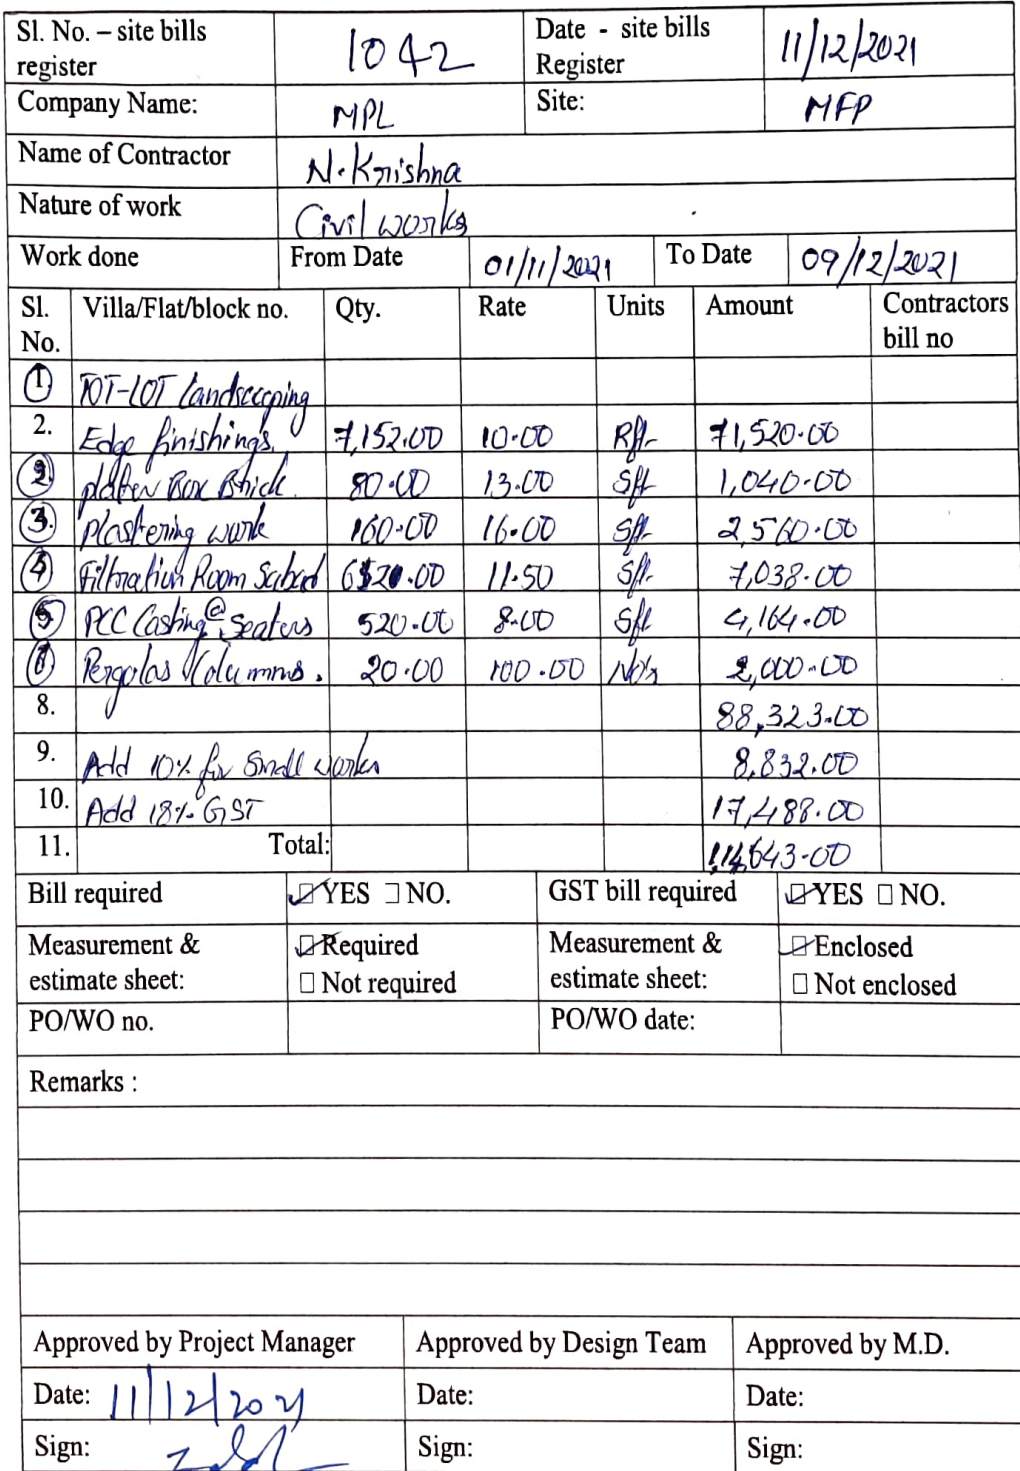 Sl. No. – site bills register 1042 Date - site bills Register 11/12/2021
Company Name: MPL Site: MFP
Name of Contractor N. Krishna
Nature of work Civil works
Work done From Date 01/11/2021 To Date 09/12/2021
Sl. No. Villa/Flat/block no. Qty. Rate Units Amount Contractors bill no
1 TOT-LOT Landscaping
2. Edge finishings. 7,152.00 10.00 Rft 71,520.00
2 Box Brick. 80.00 13.00 Sft 1,040.00
3. Plastering work 160.00 16.00 Sft 2,560.00
4 Filtration Room 11.50 Sft 7,038.00
5 PCC Casting @ Seaters 520.00 8.00 Sft 4,164.00
6 Pergolas Columns. 20.00 100.00 No's 2,000.00
8. 88,323.00
9. Add 10% for Small works 8,832.00
10. Add 18% GST 17,488.00
11. Total: 1,14,643.00
Bill required YES NO. GST bill required YES NO.
Measurement & estimate sheet: Required Not required Measurement & estimate sheet: Enclosed Not enclosed
PO/WO no. PO/WO date:
Remarks :
Approved by Project Manager Approved by Design Team Approved by M.D.
Date: 11/12/2021 Date: Date:
Sign: Sign: Sign: